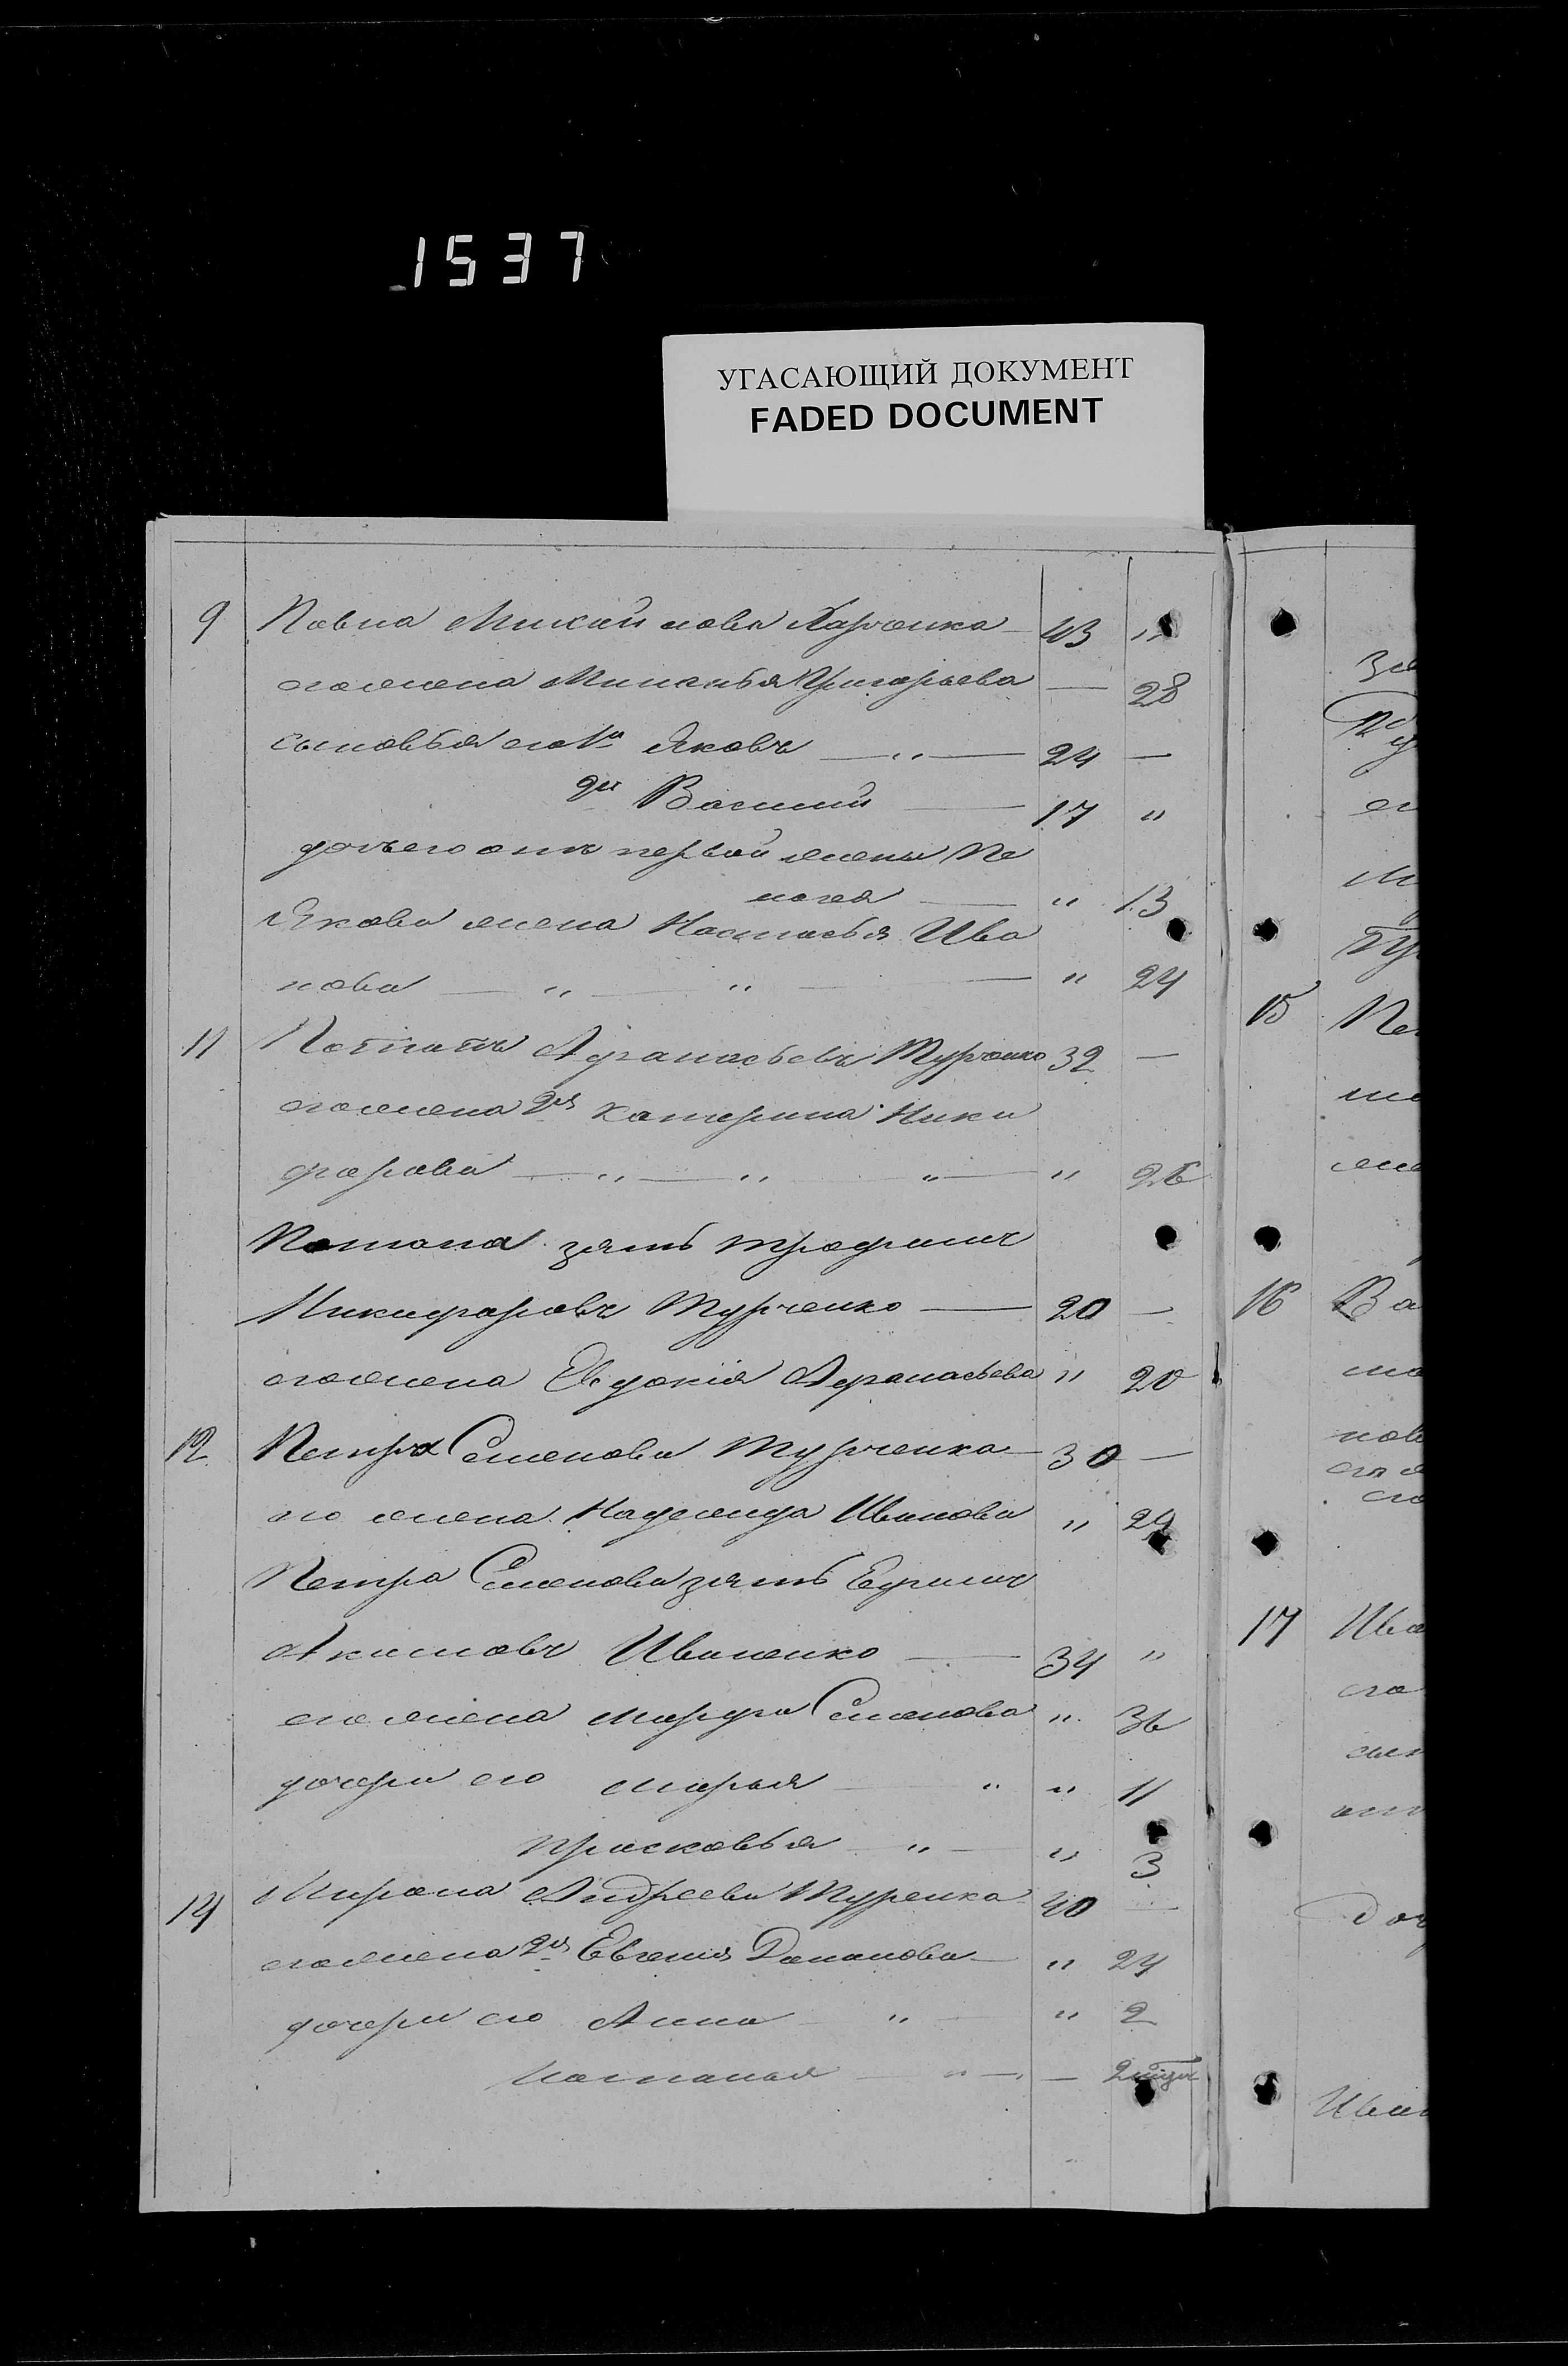 1537
УГАСАЮЩИЙ ДОКУМЕНТ
FADED DOCUMENT
9 Павла Михайлова Харченка — 43 "
его жена Григорьева — 28
сыновья его 1й Яковъ — " — 24 —
2й Василий — 17 "
дочь его отъ первой жены Пе
лагея — " 13
Якова жена Настасья Ива
нова — " — " — " 24
11 Афанасьевъ Турченко 32 —
его жена 2я Катерина Ники
форова — " — " " — " 26
зять Трофимъ
Никифоровъ Турченко — 20 —
его жена Евдокія Афанасьева " 20
12 Петра Семенова Турченка — 30 —
его жена Надежда Иванова " 29
Петра Семенова зять Ефимъ
Акимовъ Иваненко — 34 "
его жена Марфа Семенова " 36
дочери его Марья — " " 11
Прасковья — " — " 3
14 Мирона Андреева Турченка 40 —
его жена 2я Евгения — " 24
дочери его Анна — " — " 2
Наталья — " — — 2
15 Пе
16 Ва
17 Ива
его
Иван